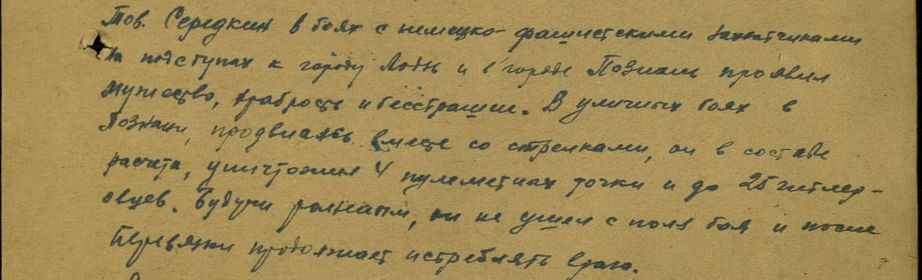 Тов. Середкин в боях с немецко-фашистскими захватчиками
на подступах к городу Лодзь и в городе Познань проявил
мужество, храбрость и бесстрашие. В уличных боях в
Познани, продвигаясь вместе со стрелками, он в составе
расчета, уничтожил 4 пулеметных точки и до 25 гитлер-
овцев. Будучи раненым, он не ушел с поля боя и после
перевязки продолжает истреблять врага.